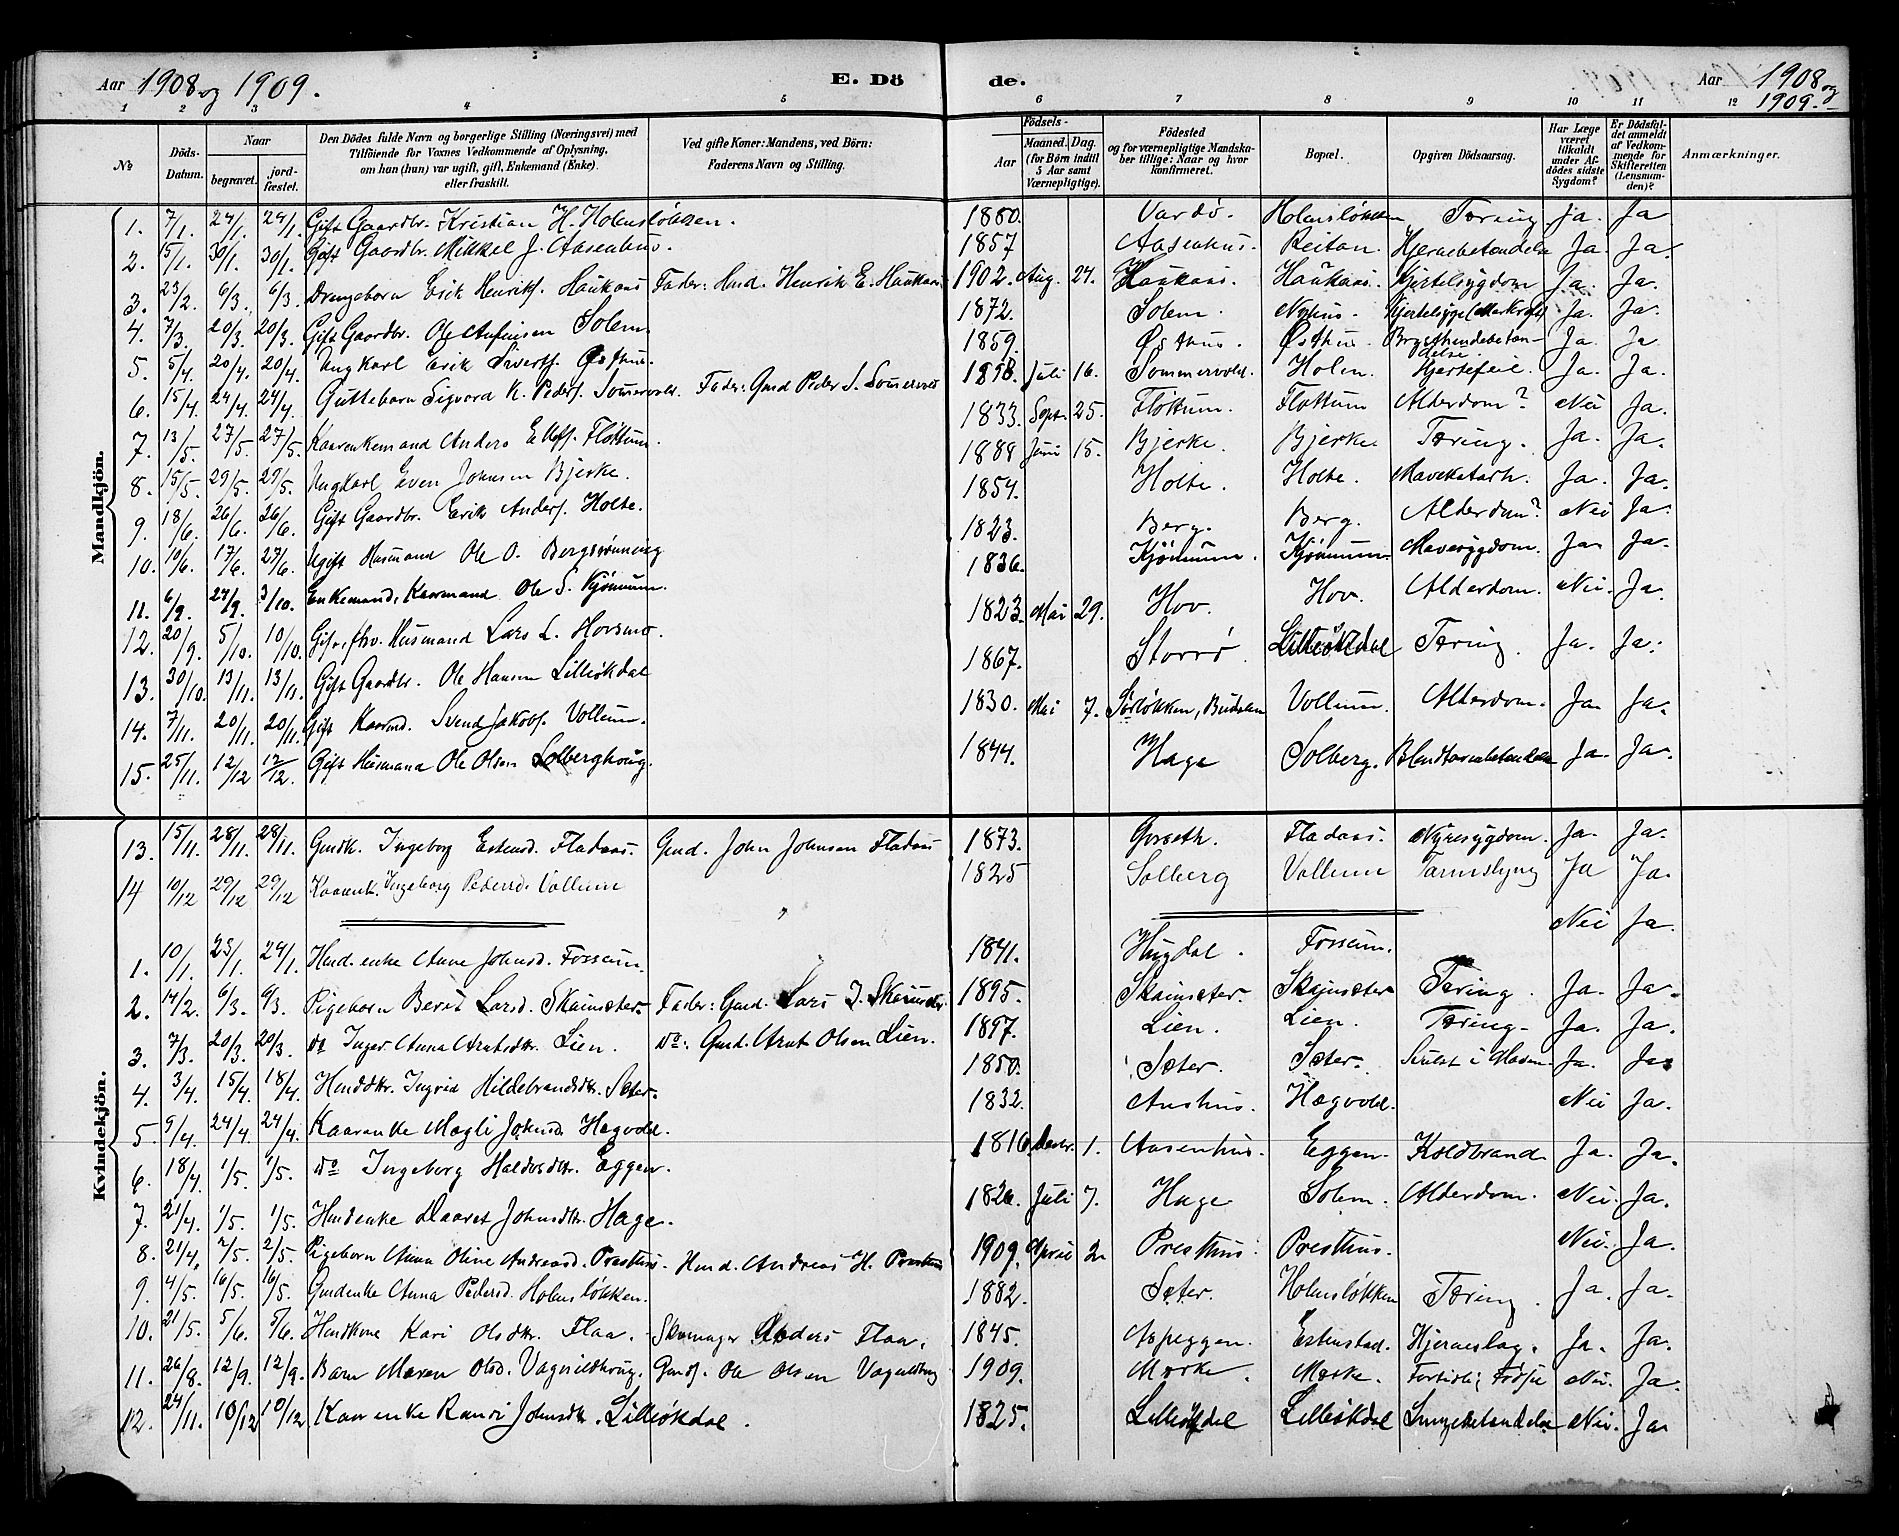 Aar 1908 og 1909. E. Dö de. Aar 1908 og 1909.
1 2 3 4 5 6 7 8 9 10 11 12
№ Döds-Datum. Naar begravet. jordfæstet. Den Dödes fulde Navn og borgerlige Stilling (Næringsvei) med Tilföiende for Voxnes Vedkommende af Oplysning, om han (hun) var ugift, gift, Enkemand (Enke) eller fraskilt. Ved gifte Koner: Mandens, ved Börn: Faderens Navn og Stilling. Födsels- Aar Maaned. Dag. (for Börn indtil 5 Aar samt Værnepligtige). Födested og for værnepligtige Mandskaber tillige: Naar og hvor konfirmeret. Bopæl. Opgiven Dödsaarsag. Har Læge været tilkaldt under Afdödes sidste Sygdom? Er Dödsfaldet anmeldt af Vedkommende for Skifteretten (Lensmanden)? Anmærkninger.
Mandkjön.
1. 7/1. 24/1. 24/1. Gift Gaardbr. Kristian H. Holmsløkken. 1880. Vardø. Holmsløkken Tæring Ja. Ja
2. 15/1. 30/1. 30/1. Gift Gaardbr. Mikkel J. Aasenhus. 1857 Aasenhus. Reitan. Hjernebetændelse Ja. Ja.
3. 23/2. 6/3. 6/3. Drengebarn Erik Henriks. Haukaas Fader: Husmd. Henrik E. Haukaas 1902. Aug. 24. Haukaas. Haukaas. Kjertelsygdom Ja. Ja.
4. 7/3. 20/3. 20/3. Gift Gaardbr. Ole Solem. 1872. Solem. Nyhus. Ja. Ja.
5. 5/4. 20/4. 20/4. Ungkarl Erik Siverts. Østhus. 1859. Østhus. Østhus. Brysthindebetændelse Ja. Ja
6. 15/4. 24/4. 24/4. Guttebarn Sigvard K. Peders. Sommervold. Fader: Gmd Peder S. Sommervold 1898. Juli 16. Sommervold. Holem. Hjertefeil. Ja. Ja.
7. 13/5. 27/5. 27/5. Kaarenkemand Anders Ells. Fløttum. 1833. Sept. 25. Fløttum. Fløttum Alderdom? Nei Ja.
8. 15/5. 29/5. 29/5. Ungkarl Even Johnsen Bjerke. 1888 Juni 15. Bjerke. Bjerke. Tæring. Ja. Ja.
9. 18/6. 26/6. 26/6. Gift Gaardbr. Erik Anders. Holte. 1854. Holte. Holte. Mavekatarh. Ja. Ja.
10. 10/6. 17/6. 27/6. Ugift Husmand Ole O. Bergsrønning 1823. Berg. Berg. Alderdom? Nei Ja.
11. 6/9. 24/9. 3/10. Enkemand, Kaarmand Ole S. Kjønnum. 1836. Kjønnum. Kjønnum. Mavesygdom. Ja. Ja.
12. 20/9. 5/10. 10/10. Gift, fhv. Husmand Lars L. Hovsmo. 1823. Mai 29. Hov. Hov. Alderdom Nei. Ja.
13. 30/10. 13/11. 13/11. Gift Gaardbr. Ole Hansen Lilleøkdal 1867. Storrø. Lilleøkdal Tæring. Ja. Ja.
14. 7/11. 20/11. 20/11. Gift Kaarmd. Svend Jakobs. Vollum. 1830. Mai 7. Sørløkken, Budalen Vollum. Alderdom. Ja. Ja.
15. 25/11. 12/12 12/12. Gift Husmand Ole Olsen Solberghaug. 1844. Hage Solberg. Blindtarmbetændelse Ja. Ja.
Kvindekjön.
13. 15/11. 28/11. 28/11. Gmdk. Ingeborg Estensd. Fladaas. Gmd. John Johnsen Fladaas 1873. Gorseth. Fladaas. Nyresygdom. Ja. Ja.
14 10/12 29/12 29/12 Kaarenk. Ingeborg Pedersd. Vollum 1825 Solberg Vollum Tarmslyng Ja Ja.
1. 10/1. 23/1. 24/1. Husmd. enke Anne Johnsd. Fossum. 1841. Hugdal. Fossum. Nei Ja.
2. 14/2. 6/3. 6/3. Pigebarn Beret Larsd. Skainsæter. Fader: Gmd. Lars J. Skainsæter. 1895. Skainsæter. Skainsæter Tæring. Ja. Ja.
3. 7/3. 20/3. 20/3. do Inger Anna Arntsdtr. Lien. do: Gmd. Arnt Olsen Lien. 1897. Lien. Lien. Tæring. Ja. Ja.
4. 3/4. 15/4. 18/4. Husmdtr. Ingrid Hildebrandsdtr. Sæter. 1850. Sæter. Sæter. Svulst i Maven Ja. Ja.
5. 9/4. 24/4. 24/4. Kaarenke Magli Johnsd. Hægvold. 1832. Aushus. Hægvold. Nei Ja.
6. 18/4. 1/5. 1/5. do Ingeborg Haldosdtr. Eggen. 1816. Decbr. 1. Aasenhus. Eggen. Koldbrand Ja. Ja.
7. 21/4. 1/5. 1/5. Husmdenke Daaret Johnsdtr. Hage. 1826. Juli 7. Hage Solem. Alderdom. Nei. Ja.
8. 21/4. 7/5. 2/5. Pigebarn Anna Oline Andreasd. Presthus. Husmd. Andreas H. Presthus 1909. April 2. Presthus. Presthus. Nei. Ja.
9. 4/5. 16/5. 16/5. Gmdenke Anna Pedersd. Holmsløkken. 1882. Sæter. Holmsløkken Tæring. Ja. Ja.
10. 21/5. 5/6. 5/6. Husmdkone Kari Olsdtr. Flaa. Skomager Anders Flaa. 1845. Aspeggen. Estenstad. Hjerneslag. Ja. Ja.
11. 26/8. 12/9. 12/9. Barn Maren Olsd. Vagnildhaug. Gmds. Ole Olsen Vagnildhaug 1909. Mærke. Mærke. Fortidlig Fødsel Nei. Ja.
12. 24/11. 10/12 10/12 Kaarenke Randi Johnsdtr. Lilleøkdal. 1825. Lilleøkdal Lilleøkdal Lungebetændelse Nei. Ja.